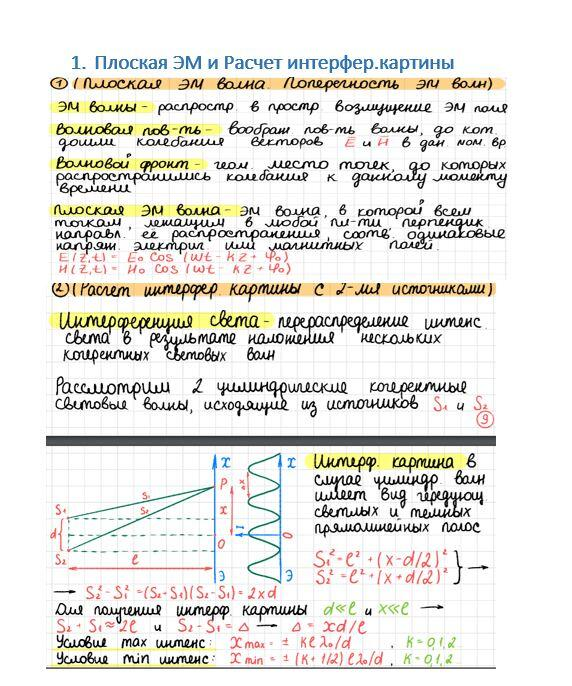 1. Плоская ЭМ и Расчет интерфер.картины
① (Плоская ЭМ волна. Поперечность ЭМ волн)
ЭМ волны - распростр. в простр. возмущение ЭМ поля
Волновая пов-ть - воображ пов-ть волны, до кот.
дошли колебания векторов E и H в дан. мом. вр
Волновой фронт - геом. место точек, до которых
распространились колебания к данному моменту
времени
Плоская ЭМ волна - ЭМ волна, в которой всем
точкам, лежащим в любой пл-ти перпендик
направл. её распространения соотв. одинаковые
напряж. электрич. или магнитных полей.
E(z,t) = E₀ cos (wt - kz + φ₀)
H(z,t) = H₀ cos (wt - kz + φ₀)
② (Расчет интерфер. картины с 2-мя источниками)
Интерференция света - перераспределение интенс.
света в результате наложения нескольких
когерентных световых волн
Рассмотрим 2 цилиндрические когерентные
световые волны, исходящие из источников S₁ и S₂
⑨
x
P
S₁
S₁
S₂
d
S₂
x
O
l
Э
x
I
O
Э
Интерф. картина в
случае цилиндр. волн
имеет вид чередующ.
светлых и темных
прямолинейных полос
S₁² = l² + (x-d/2)²
S₂² = l² + (x+d/2)² } →
→ S₂² - S₁² = (S₂+S₁)(S₂-S₁) = 2xd
Для получения интерф. картины d≪l и x≪l →
S₂ + S₁ ≈ 2l и S₂ - S₁ = Δ → Δ = xd/l
Условие max интенс: x max = ± kl λ₀/d , k = 0,1,2
Условие min интенс: x min = ± (k + 1/2) l λ₀/d , k = 0,1,2